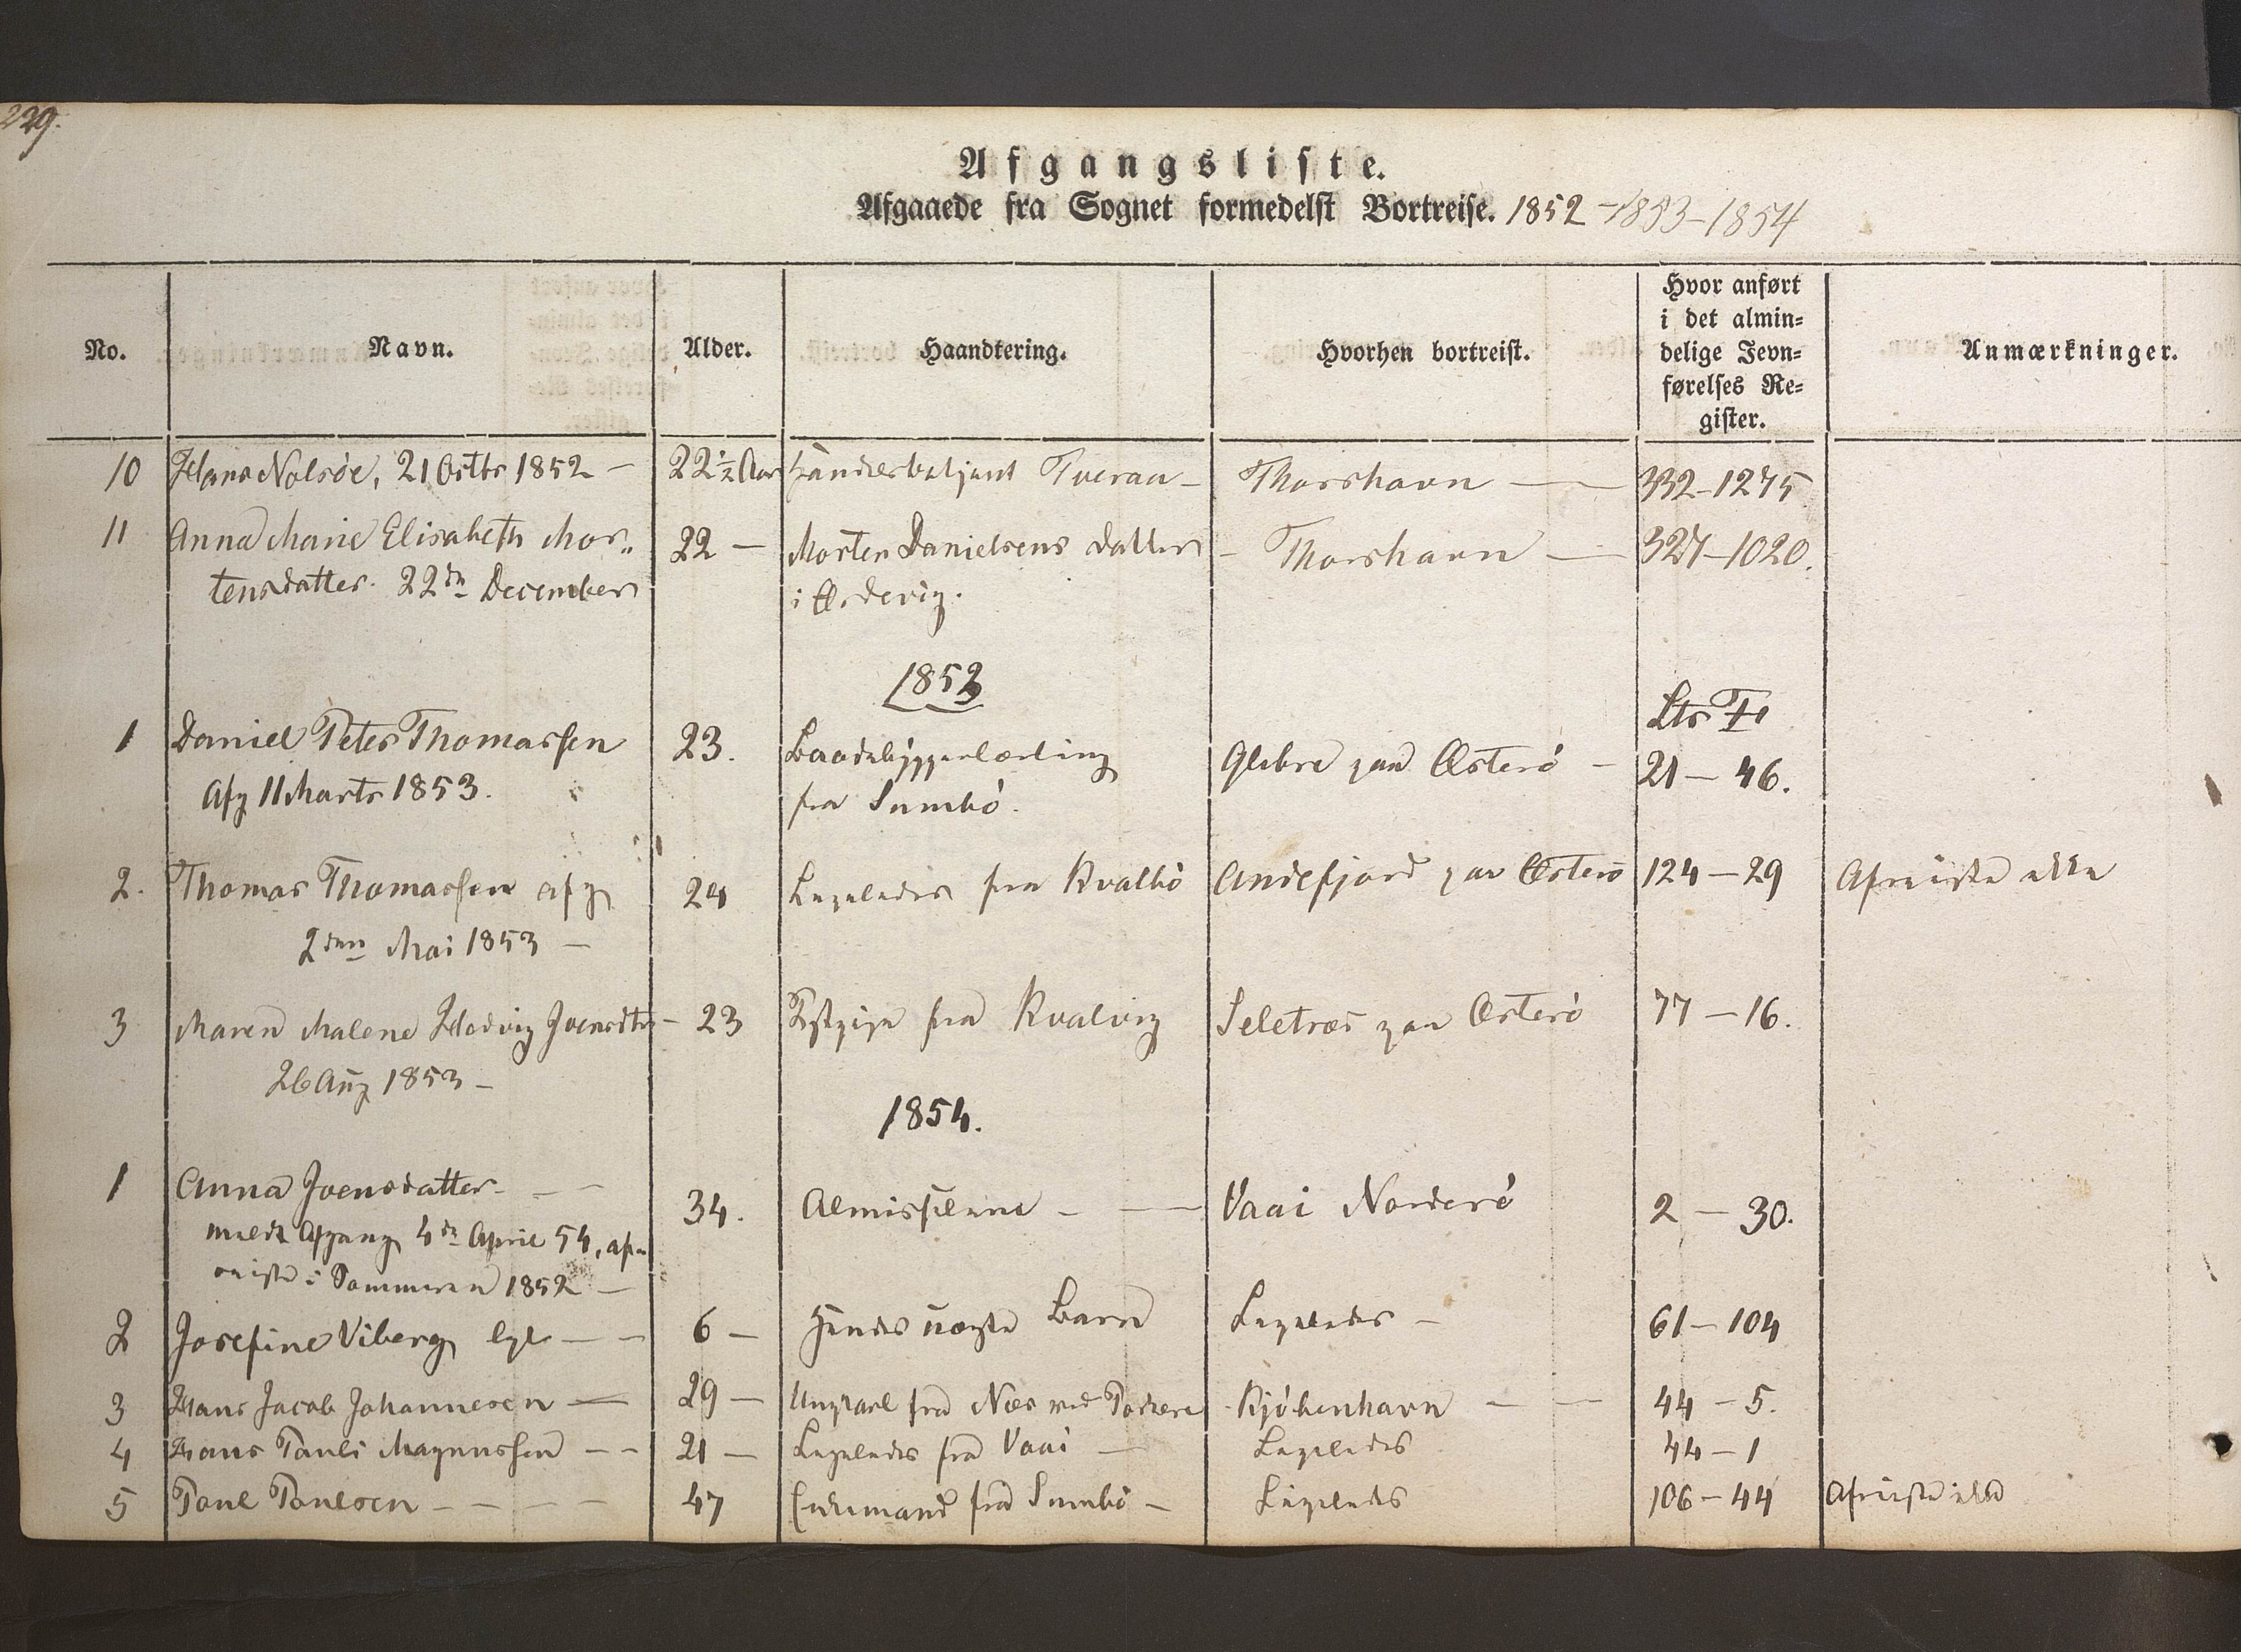 229.
Afgangsliste.
Afgaaede fra Sognet formedelst Bortreise. 1852-1853-1854
No. Navn. Alder. Haandtering. Hvorhen bortreist. Hvor anført i det almin= delige Jevn= førelses Re= gister. Anmærkninger.
10 Hans Nolsöe, 21 Octbr 1852 - 22½ Aar Handelsbetjent Tveraa - Thorshavn - 332-1275
11 Anna Marie Elisabeth Mor„ 22 - Morten Danielsens Datter - Thorshavn - 327-1020.
tensdatter. 22de December i Ørdevig.
1853
Ltr F
1 Daniel Peter Thomassen 23. Baadebyggerlærling Glibre paa Österö - 21-46.
Afg 11 Marts 1853. fra Sumbö.
2. Thomas Thomassen afg 24 Ligeledes fra Kvalbö Andefjord paa Österö 124-29 Afreiste ikke
2den Mai 1853 -
3 Maren Malene Hedvig Joensdtr - 23 Pige fra Kvalvig Seletræ paa Österö 77-16.
26 Aug 1853 -
1854.
1 Anna Joensdatter - - 34. Almisselem - - Vaai Norderö 2-30.
meldt Afgang 4de April 54, af-
reiste i Sommeren 1852 -
2 Josefine Viberg - - 6 - Hendes uægte Barn Ligeledes - 61-104
3 Hans Jacob Johannesen - 29 - Ungkarl fra Næs ved Porkere - Kjöbenhavn - - 44-5.
4 Hans Pauli Magnussen - - 21 - Ligeledes fra Vaai - Ligeledes 44-1
5 Poul Poulsen - - - - 47 Enkemand fra Sumbö - Ligeledes 106-44 Afreiste ikke